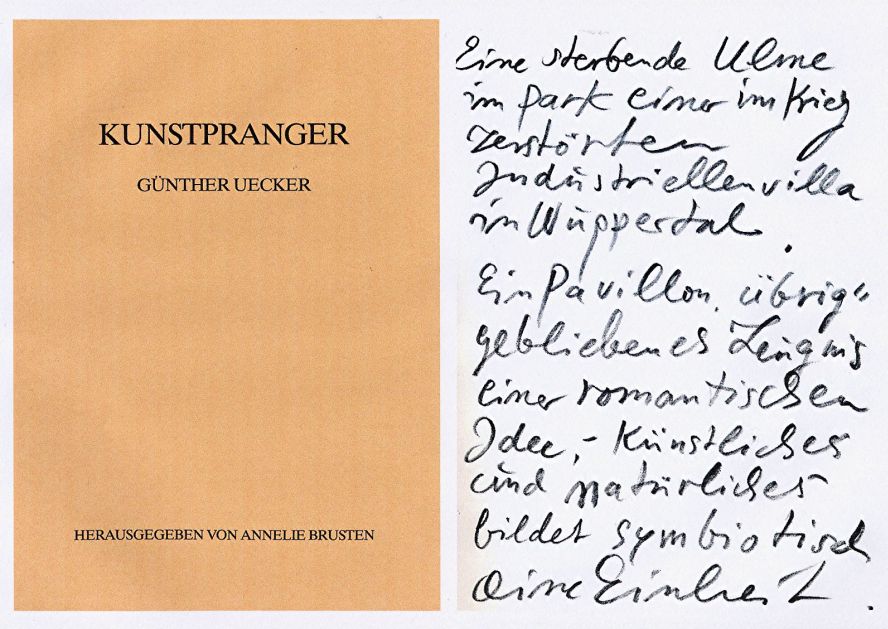 KUNSTPRANGER
GÜNTHER UECKER
HERAUSGEGEBEN VON ANNELIE BRUSTEN
Eine sterbende Ulme
im Park einer im Krieg
zerstörten
Industriellenvilla
in Wuppertal.
Ein Pavillon, übrig-
gebliebenes Zeugnis
einer romantischen
Idee,- Künstliches
und natürliches
bildet symbiotisch
eine Einheit.